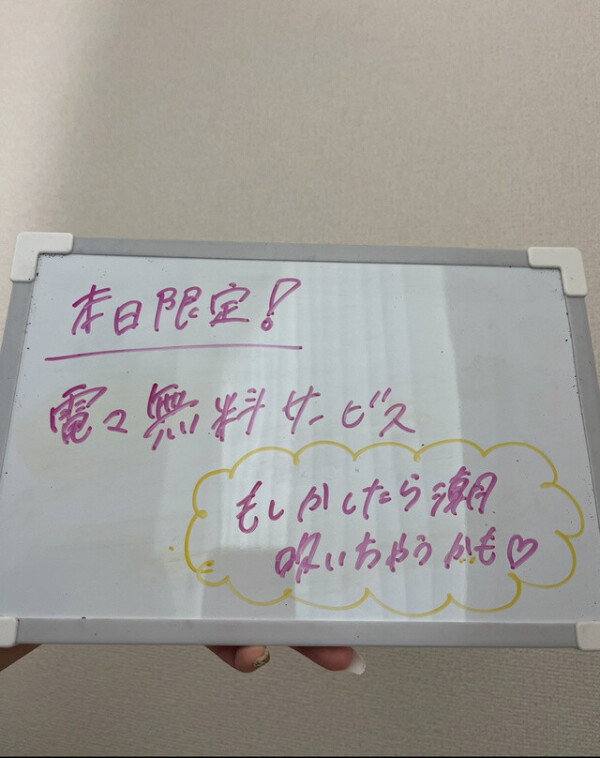 本日限定!
電々無料サービス
もしかしたら潮
吹いちゃうかも♡